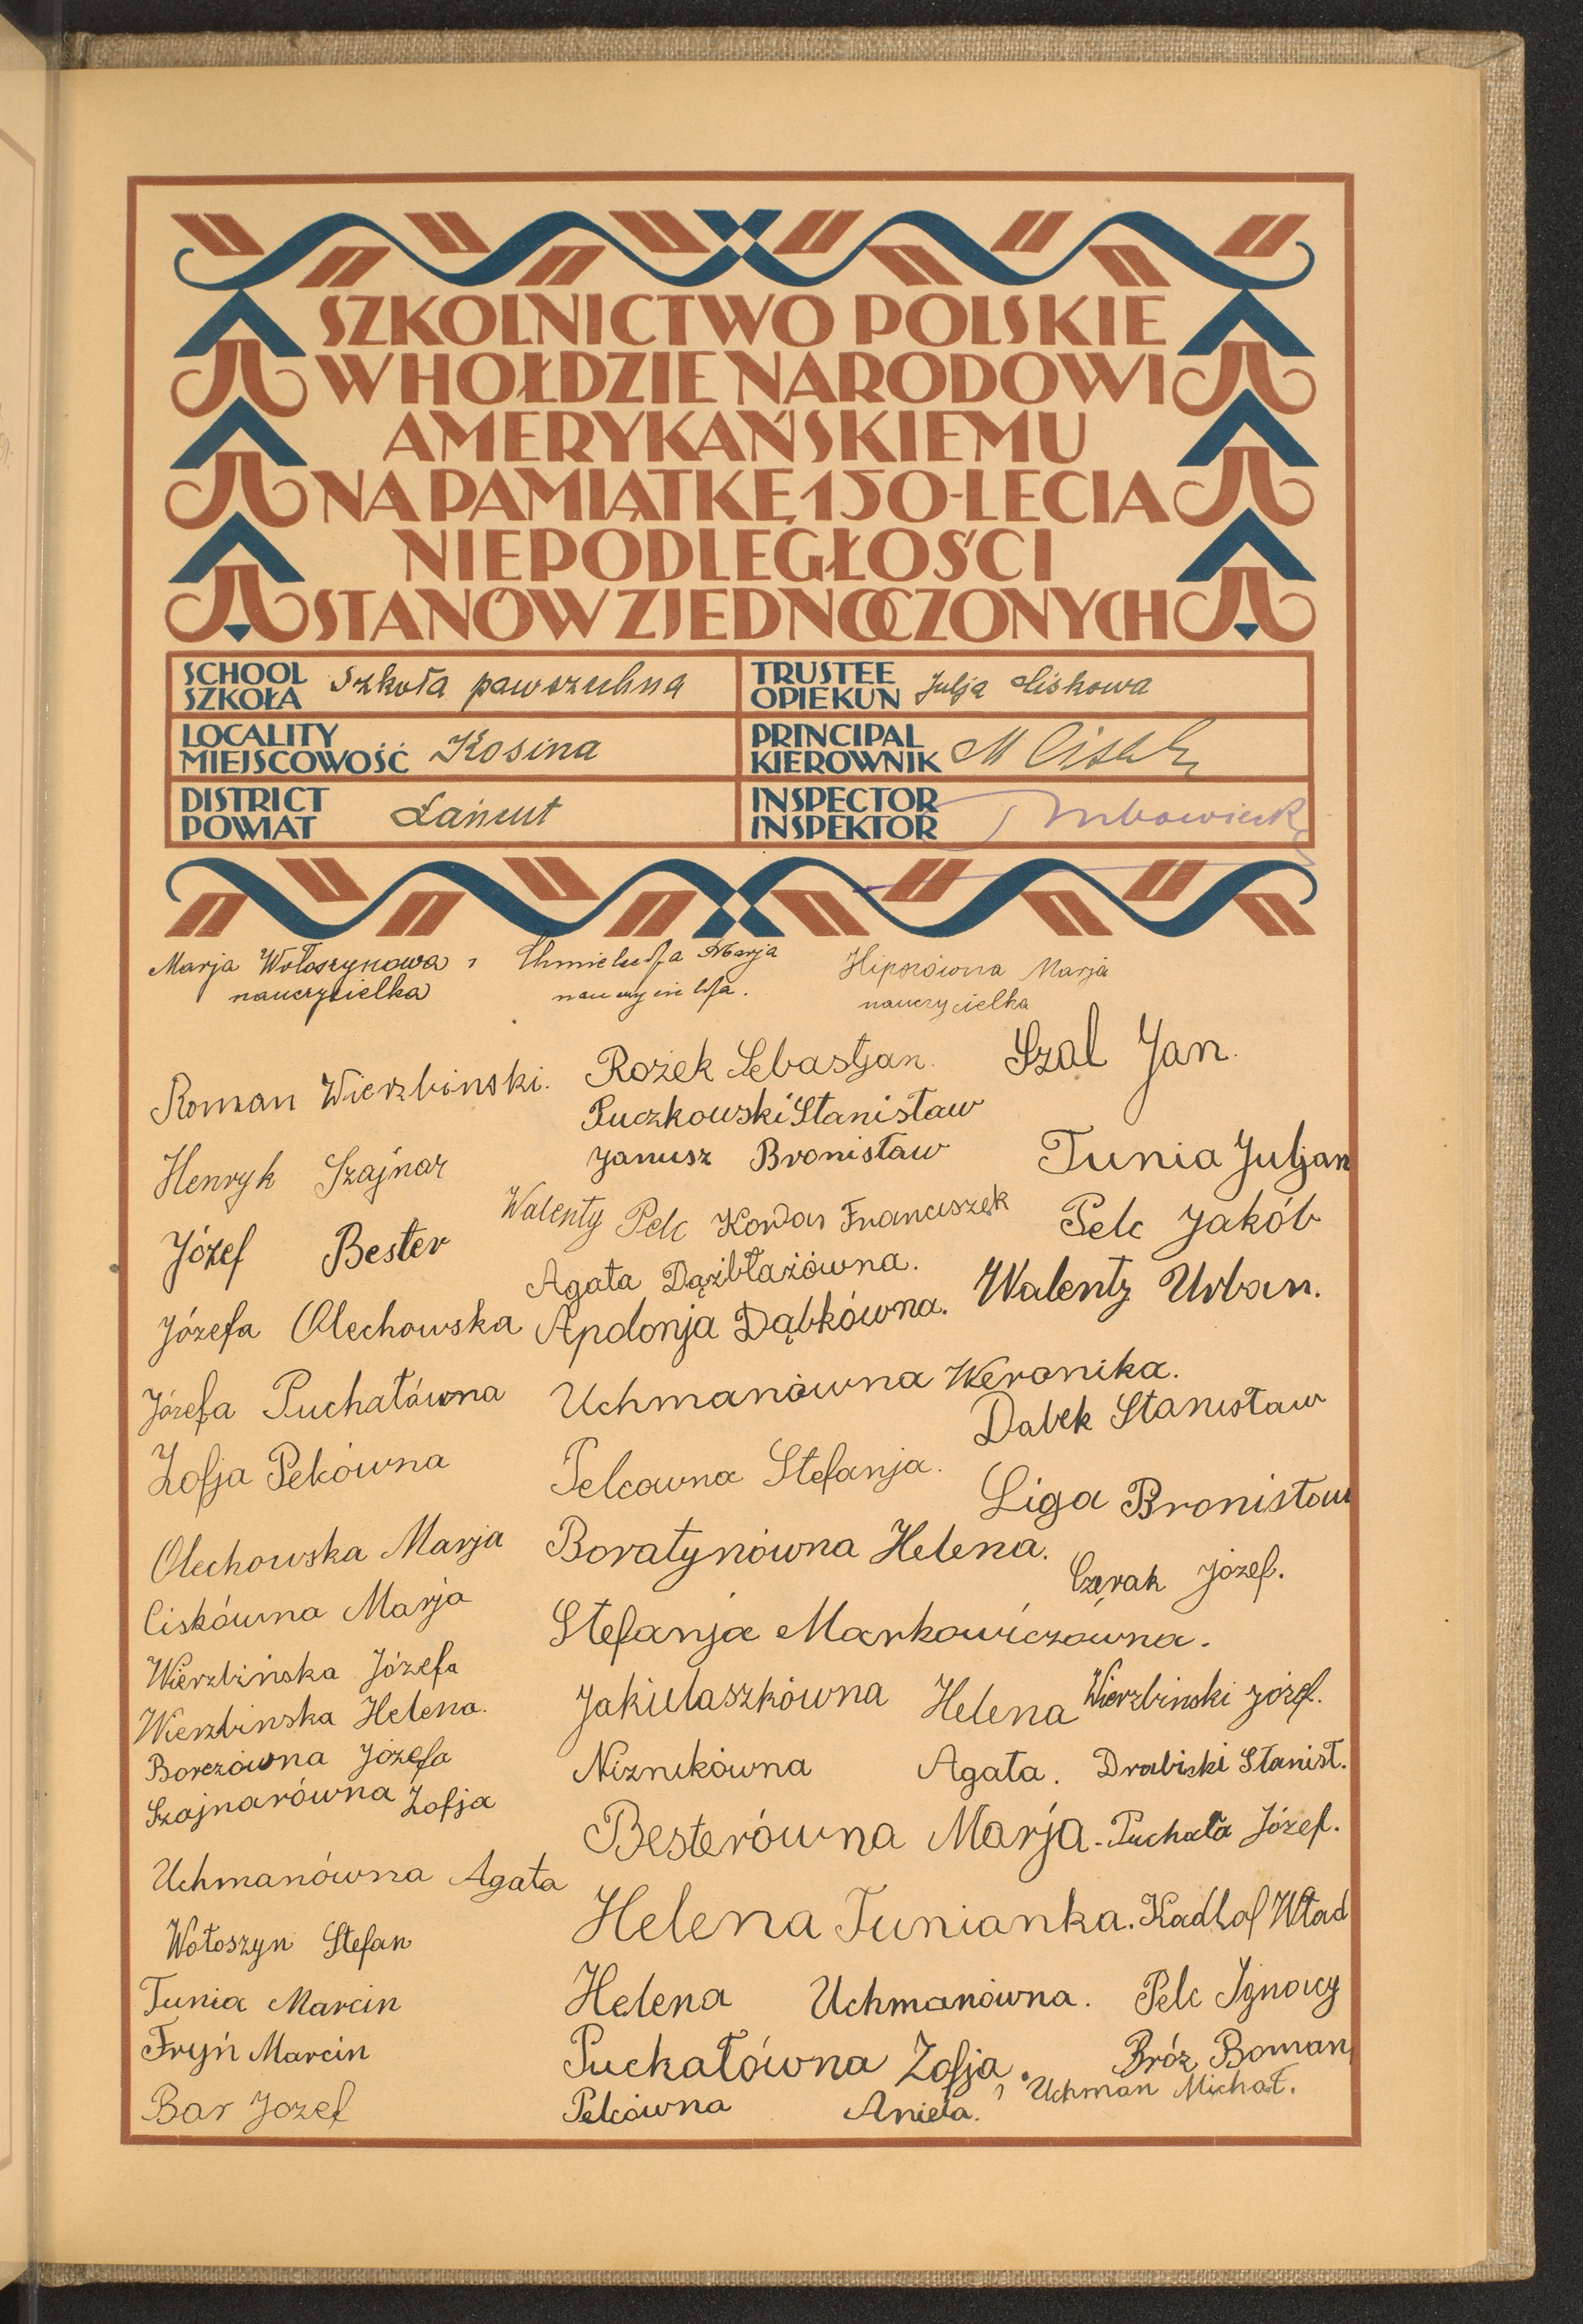 SZKOLNICTWO POLSKIE
W HOŁDZIE NARODOWI
AMERYKAŃSKIEMU
NA PAMIĄTKĘ 150-LECIA
NIEPODLEGŁOŚCI
STANÓW ZJEDNOCZONYCH
SCHOOL
SZKOŁA Szkoła powszechna
TRUSTEE
OPIEKUN Julja Ciskowa
LOCALITY
MIEJSCOWOŚĆ Kosina
PRINCIPAL
KIEROWNIK M Cisek
DISTRICT
POWIAT Łańcut
INSPECTOR
INSPEKTOR
Marja Wołoszynowa
nauczycielka
Marja
nauczycielka.
Hipszówna Marja
nauczycielka
Roman Wierzbinski.
Henryk Szajnar
Józef Bester
Józefa Olechowska
Józefa Puchałówna
Zofja Pelcówna
Olechowska Marja
Ciskówna Marja
Wierzbińska Józefa
Wierzbinska Helena.
Borczówna Józefa
Szajnarówna Zofja
Uchmanówna Agata
Wołoszyn Stefan
Tunia Marcin
Fryń Marcin
Bar Jozef
Rożek Sebastjan.
Puczkowski Stanisław
Janusz Bronisław
Walenty Pelc Kordas Franciszek
Agata Dąźbłażówna.
Apolonja Dąbkówna.
Uchmanówna Weronika.
Pelcowna Stefanja.
Boratynówna Helena.
Stefanja Markowiczówna.
Jakielaszkówna Helena
Niznikówna Agata.
Besterówna Marja.
Helena Tunianka.
Helena Uchmanówna.
Puchałówna Zofja.
Pelcówna Aniela.
Szal Jan.
Tunia Juljan
Pelc Jakób
Walenty Urban.
Dabek Stanisław
Liga Bronisław
Czerak Józef.
Wierzbinski Józef.
Drabicki Stanisł.
Puchała Józef.
Kadłof Wład
Pelc Ignacy
Bróz Roman
Uchman Michał.